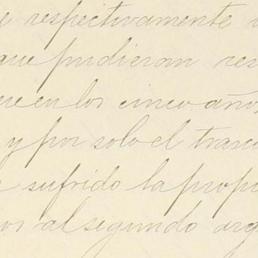 respectivamente
que pudieran res
en los cinco años,
y por solo el tras
sufrido la prop
os al segundo arg